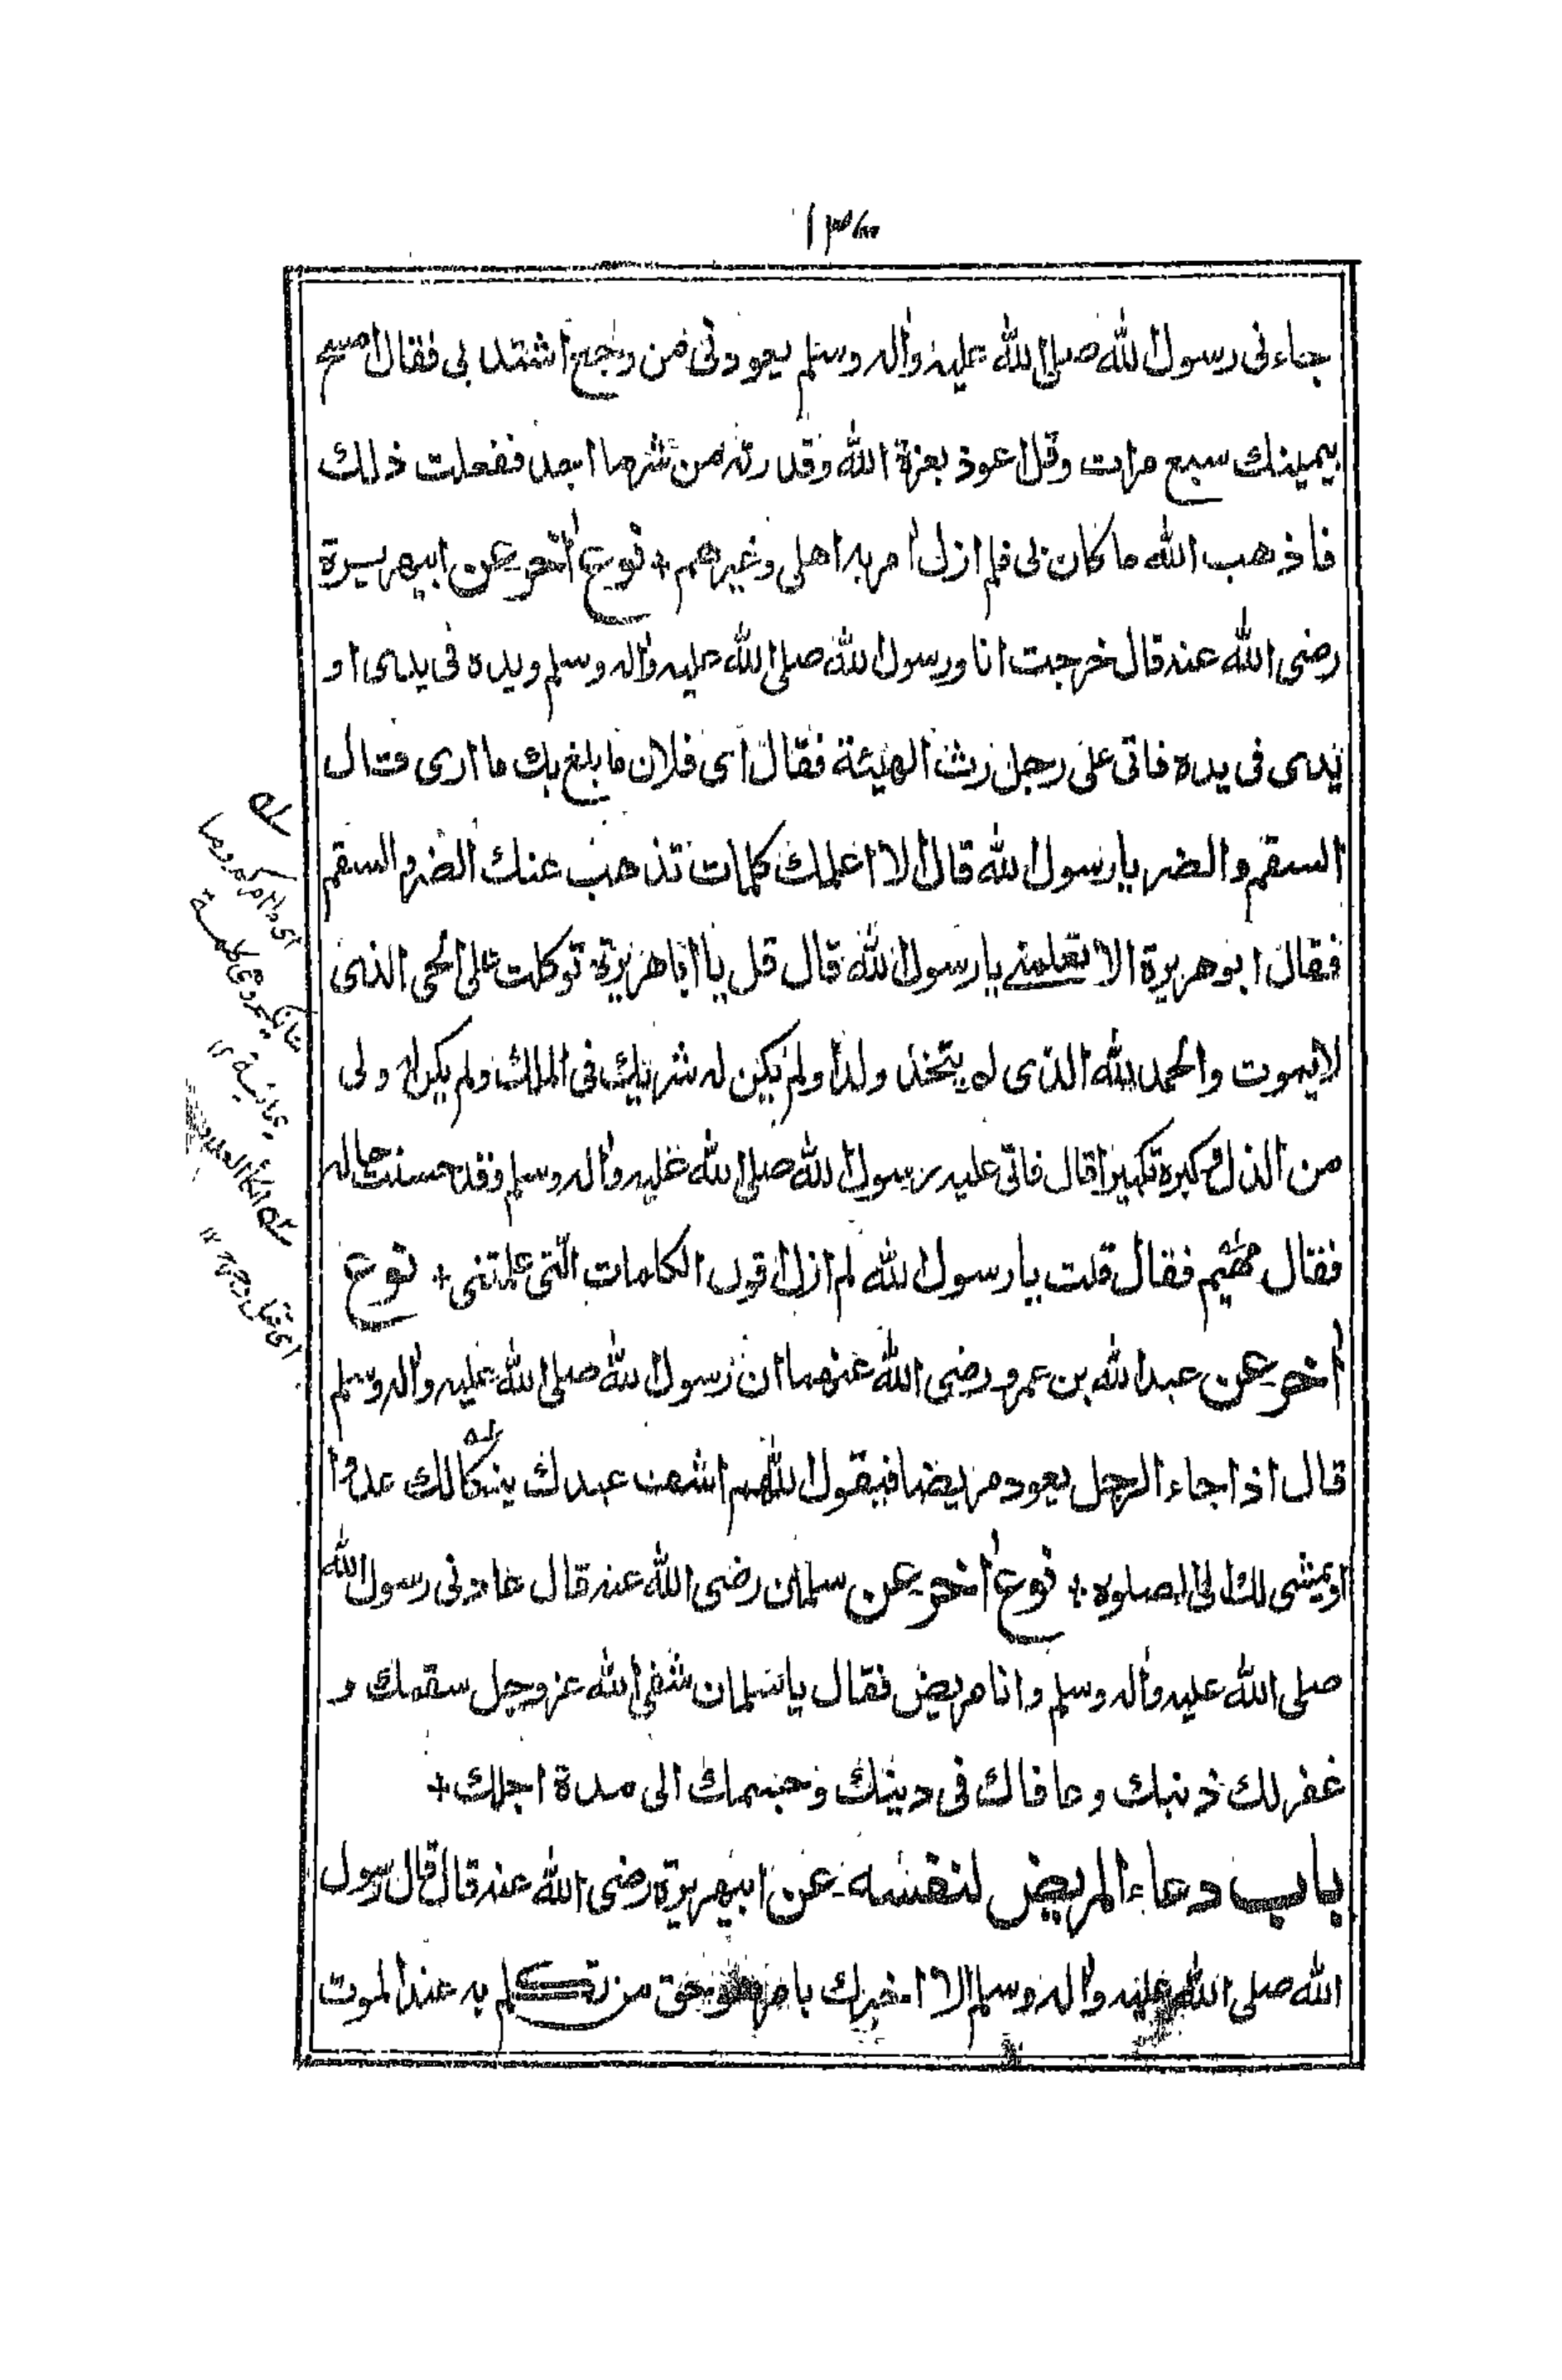 جاءنى رسول الله صلى الله عليه وأله وسلم يعودنى من وجع اشتد بى فقال امسح
بيمينك سبع مرات وقل اعوذ بعزة الله وقدرته من شر ما اجد ففعلت ذلك
فاذهب الله ما كان بى فلم ازل أمر به اهلى وغيرهم + نوع أخر عن ابيهريرة
رضى الله عنه قال خرجت انا ورسول الله صلى الله عليه وأله وسلم ويده فى يدى او
يدى فى يده فاتى على رجل رث الهيئة فقال اى فلان ما بلغ بك ما ارى قال
السقم والضر يا رسول الله قال الا اعلمك كلمات تذهب عنك الضر والسقم
فقال ابو هريرة الا تعلمنى يا رسول الله قال قل يا ابا هريرة توكلت على الحى الذى
لا يموت والحمد لله الذى لم يتخذ ولدا ولم يكن له شريك فى الملك ولم يكن له ولى
من الذل وكبره تكبيرا قال فاتى عليه رسول الله صلى الله عليه وأله وسلم وقد حسنت حاله
فقال مهيم فقال قلت يا رسول الله لم ازل اقول الكلمات التى علمتنى + نوع
أخر عن عبد الله بن عمرو رضى الله عنهما ان رسول الله صلى الله عليه وأله وسلم
قال اذا جاء الرجل يعود مريضا فيقول اللهم اشف عبدك ينكأ لك عدوا
او يمشى لك الى الصلوه + نوع أخر عن سلمان رضى الله عنه قال عادنى رسول الله
صلى الله عليه وأله وسلم وانا مريض فقال يا سلمان شفى الله عز وجل سقمك و
غفر لك ذنبك وعافاك فى دينك وجسمك الى مدة اجلك +
باب دعاء المريض لنفسه عن ابيهريرة رضى الله عنه قال قال رسول
الله صلى الله عليه وأله وسلم الا اخبرك بامر هو حق من تكلم به عند الموت